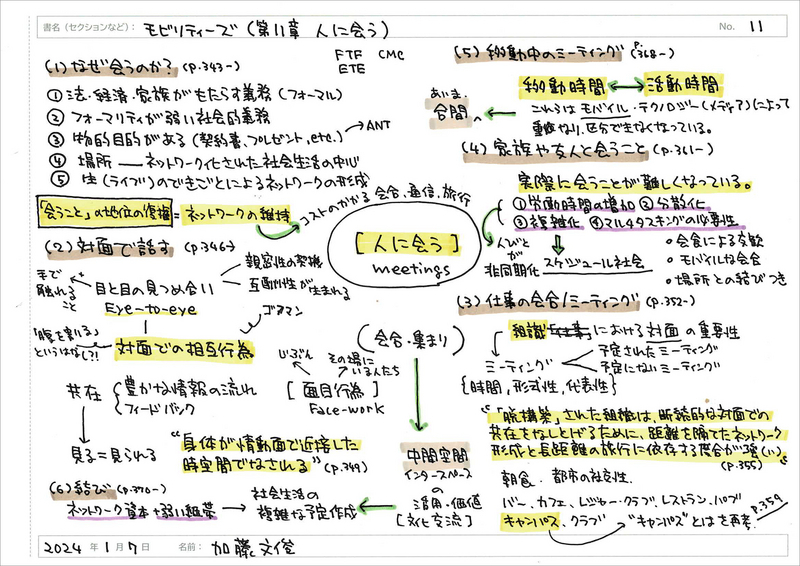 書名(セクションなど): モビリティーズ (第11章 人に会う)
No. 11
(1) なぜ会うのか? (p.343-)
FTF CMC
ETE
① 法・経済・家族がもたらす義務 (フォーマル)
② フォーマリティが弱い社会的義務
③ 物的目的がある (契約書、プレゼント, etc.) → ANT
④ 場所 ― ネットワーク化された社会生活の中心
⑤ 生(ライブ)のできごとによるネットワークの形成
「会うこと」の地位の復権 = ネットワークの維持
コストのかかる 会合、通信、旅行
(2) 対面で話す (p.346→)
手で
触れる
こと
目と目の見つめ合い
Eye-to-eye
親密性の契機
互酬性が生まれる
ゴフマン
「腹を割る」
というはなし?!
対面での相互行為
共在
豊かな情報の流れ
フィードバック
見る=見られる
“身体が情動面で近接した
時空間でなされる” (p.349)
(6) 結び (p.370-)
ネットワーク資本+弱い紐帯
社会生活の
複雑な予定作成
[人に会う]
meetings
(会合・集まり)
じぶん
その場に
いる人たち
[面目行為]
Face-work
中間空間
インタースペース
の
活用・価値
[文化交流]
(5) 移動中のミーティング (p.368-)
移動時間 ↔ 活動時間
あいま
合間
これらは モバイル・テクノロジー(メディア)によって
重なり、区分できなくなっている。
(4) 家族や友人と会うこと (p.361-)
実際に会うことが難しくなっている。
① 労働時間の増加 ② 分散化
③ 複雑化 ④ マルチタスキングの必要性
人びと
が
非同期化
スケジュール社会
・会食による交歓
・モバイルな会食
・場所との結びつき
(3) 仕事の会合/ミーティング (p.352-)
組織における対面の重要性
ミーティング
予定されたミーティング
予定にないミーティング
{時間, 形式性, 代表性}
“「脱構築」された組織は、断続的な対面での
共在をなしとげるために、距離を隔てたネットワーク
形成と長距離の旅行に依存する度合が強(い)”
(p.355)
朝食、都市の社交性、
バー、カフェ、レジャー・クラブ、レストラン、パブ
キャンパス、クラブ
“キャンパス”とはを再考 p.359
2024 年 1 月 7 日
名前: 加藤文俊